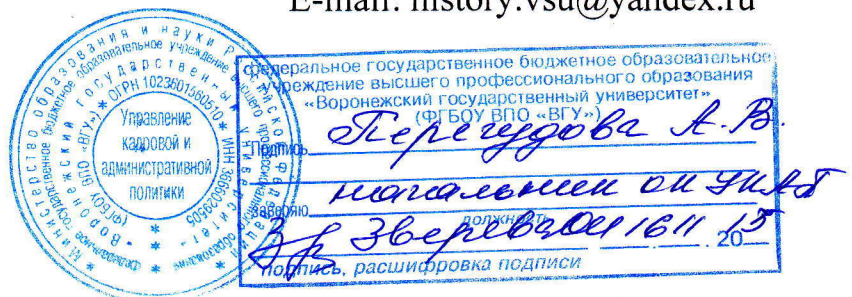 E-mail: history.vsu@yandex.ru
Министерство образования и науки Российской Федерации
Федеральное государственное бюджетное образовательное учреждение высшего профессионального образования
Воронежский государственный университет
(ФГБОУ ВПО «ВГУ») * ОГРН 1023601560510 * ИНН 3666029505
Управление
кадровой и
административной
политики
федеральное государственное бюджетное образовательное
учреждение высшего профессионального образования
«Воронежский государственный университет»
(ФГБОУ ВПО «ВГУ»)
Подпись Перегудова А.В.
начальник ОК
заверяю
должность
Зверева 20 15
подпись, расшифровка подписи